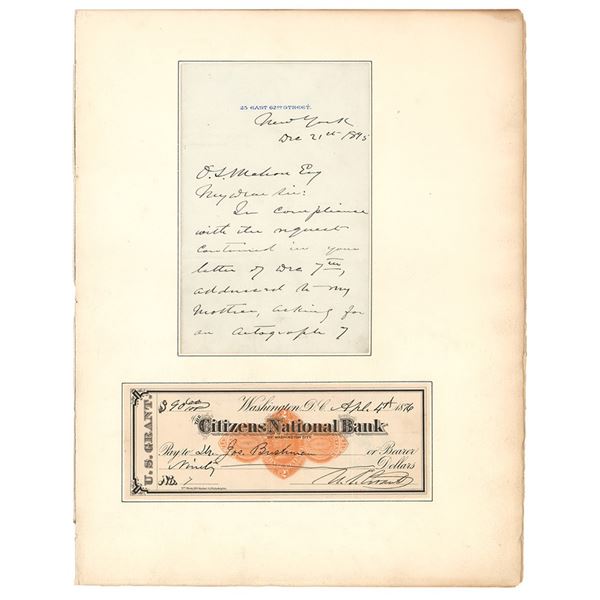 25 EAST 62ND STREET.
New York
Dec 21st 1895
O. S. Mahon Esq
My dear Sir:
In compliance
with the request
contained in your
letter of Dec 7th,
addressed to my
Mother, asking for
an autograph of
U.S. GRANT.
$90 00/100 Washington, D.C. Apl. 4th 1876
Citizens National Bank
OF WASHINGTON CITY.
Pay to Jos. Bushman or Bearer
Ninety Dollars
No. 7 U. S. Grant